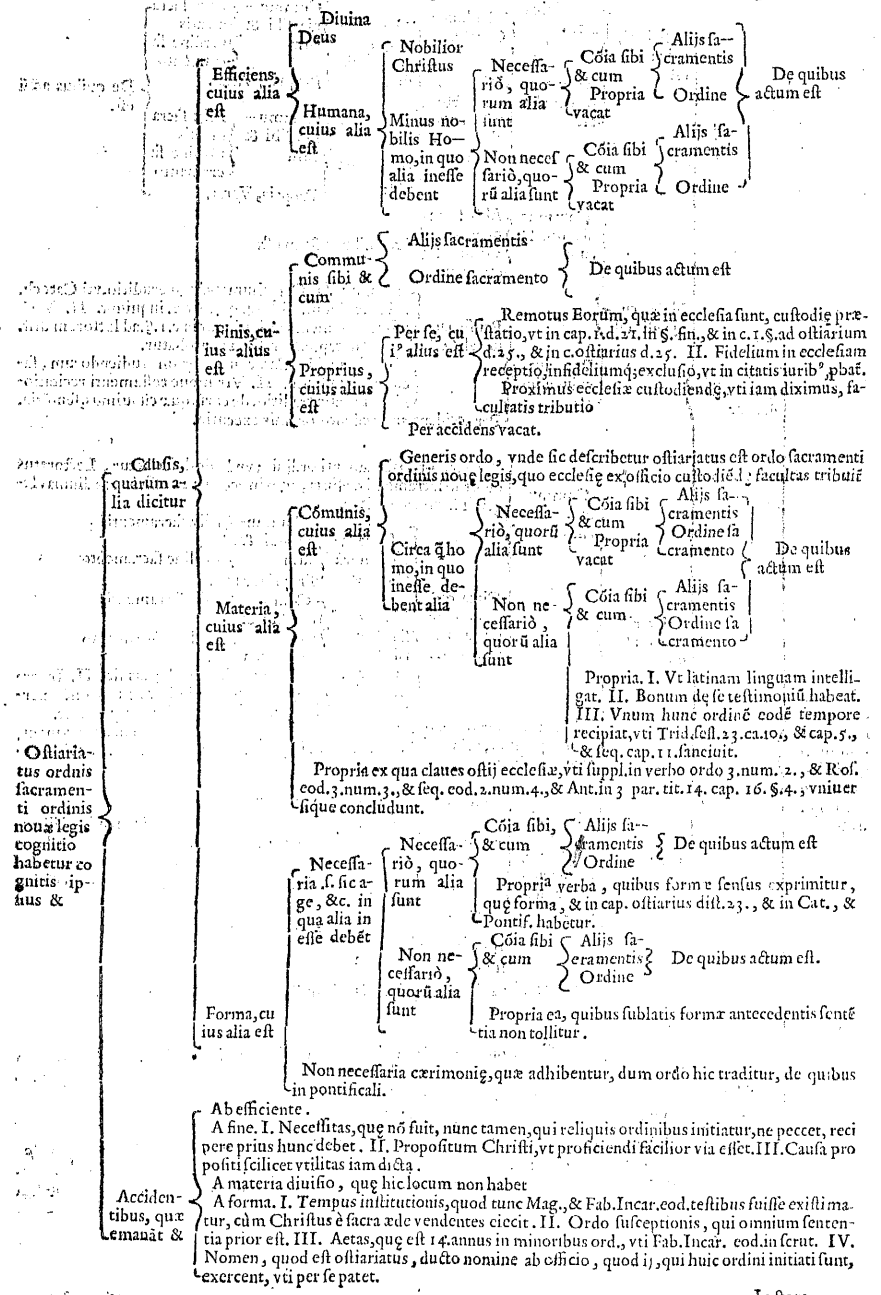 Diuina
Deus
Efficiens,
cuius alia
est
Humana,
cuius alia
est
Nobilior
Christus
Minus no-
bilis Ho—
mo, in quo
alia inesse
debent
Necessa-
riò, quo-
rum alia
sunt
Cōia sibi
& cum
Propria
vacat
Alijs sa--
cramentis
Ordine
Non necess
sariò, quo-
rū alia sunt
Cōia sibi
& cum
Propria
vacat
Alijs sa-
cramentis
Ordine
De quibus
actum est
Finis, cu-
ius alius
est
Commu-
nis sibi &
cum
Alijs sacramentis
Ordine sacramento
De quibus actum est
Proprius,
cuius alius
est
Per se, cu
iꝰ alius est
Remotus Eorum, quæ in ecclesia sunt, custodię præ-
statio, vt in cap. 1. d. 21. in §. fin., & in c. 1. §. ad ostiarium
d. 25., & in c. ostiarius d. 25. II. Fidelium in ecclesiam
receptio, infideliumq; exclusio, vt in citatis iuribꝰ, ꝓbat̄.
Proximus ecclesiæ custodiendę, vti iam diximus, fa-
cultatis tributio
Per accidens vacat.
Causis,
quarum a-
lia dicitur
Materia,
cuius alia
est
Cōmunis,
cuius alia
est
Generis ordo, vnde sic describetur ostiariatus est ordo sacramenti
ordinis nouę legis, quo ecclesię ex officio custodiē. facultas tribuit̄
Circa q̄ ho
mo, in quo
inesse de-
bent alia
Necessa-
riò, quorū
alia sunt
Cōia sibi
& cum
Propria
vacat
Alijs sa-
cramentis
Ordine sa
cramento
Non ne-
cessariò,
quorū alia
sunt
Cōia sibi
& cum
Alijs sa-
cramentis
Ordine sa
cramento
De quibus
actum est
Propria. I. Vt latinam linguam intelli-
gat. II. Bonum de se testimoniū habeat.
III. Vnum hunc ordinē eodē tempore
recipiat, vti Trid. sess. 23. ca. 10., & cap. 5.,
& seq. cap. 11. sanciuit.
Propria ex qua claues ostij ecclesiæ, vti suppl. in verbo ordo 3. num. 2., & Ros.
eod. 3. num. 3., & seq. eod. 2. num. 4., & Ant. in 3 par. tit. 14. cap. 16. §. 4., vniuer
sique concludunt.
Ostiaria-
tus ordnis
sacramen-
ti ordinis
nouæ legis
cognitio
habetur co
gnitis ip-
sius &
Forma, cu
ius alia est
Necessa-
ria .s. sic a-
ge, &c. in
qua alia in
esse debēt
Necessa-
riò, quo-
rum alia
sunt
Cōia sibi,
& cum
Alijs sa--
cramentis
Ordine
De quibus actum est
Propria verba, quibus formæ sensus exprimitur,
quę forma, & in cap. ostiarius dist. 23., & in Cat., &
Pontif. habetur.
Non ne-
cessariò,
quorū alia
sunt
Cōia sibi
& cum
Alijs sa-
cramentis
Ordine
De quibus actum est.
Propria ea, quibus sublatis formæ antecedentis sentē
tia non tollitur.
Non necessaria cærimonię, quæ adhibentur, dum ordo hic traditur, de quibus
in pontificali.
Acciden-
tibus, quæ
emanāt &
Ab efficiente.
A fine. I. Necessitas, quę nō fuit, nunc tamen, qui reliquis ordinibus initiatur, ne peccet, reci
pere prius hunc debet. II. Propositum Christi, vt proficiendi facilior via esset. III. Causa pro
positi scilicet vtilitas iam dicta.
A materia diuisio, quę hic locum non habet
A forma. I. Tempus institutionis, quod tunc Mag., & Fab. Incar. eod. testibus fuisse existima-
tur, cùm Christus è sacra æde vendentes eiecit. II. Ordo susceptionis, qui omnium senten-
tia prior est. III. Aetas, quę est 14. annus in minoribus ord., vti Fab. Incar. eod. in scrut. IV.
Nomen, quod est ostiariatus, ducto nomine ab officio, quod ij, qui huic ordini initiati sunt,
exercent, vti per se patet.